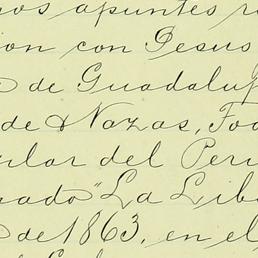 apuntes
ion con Jesus
de Guadalup
de Nazas, Fo
ular del Peri
ado "La Libe
de 1863, en el